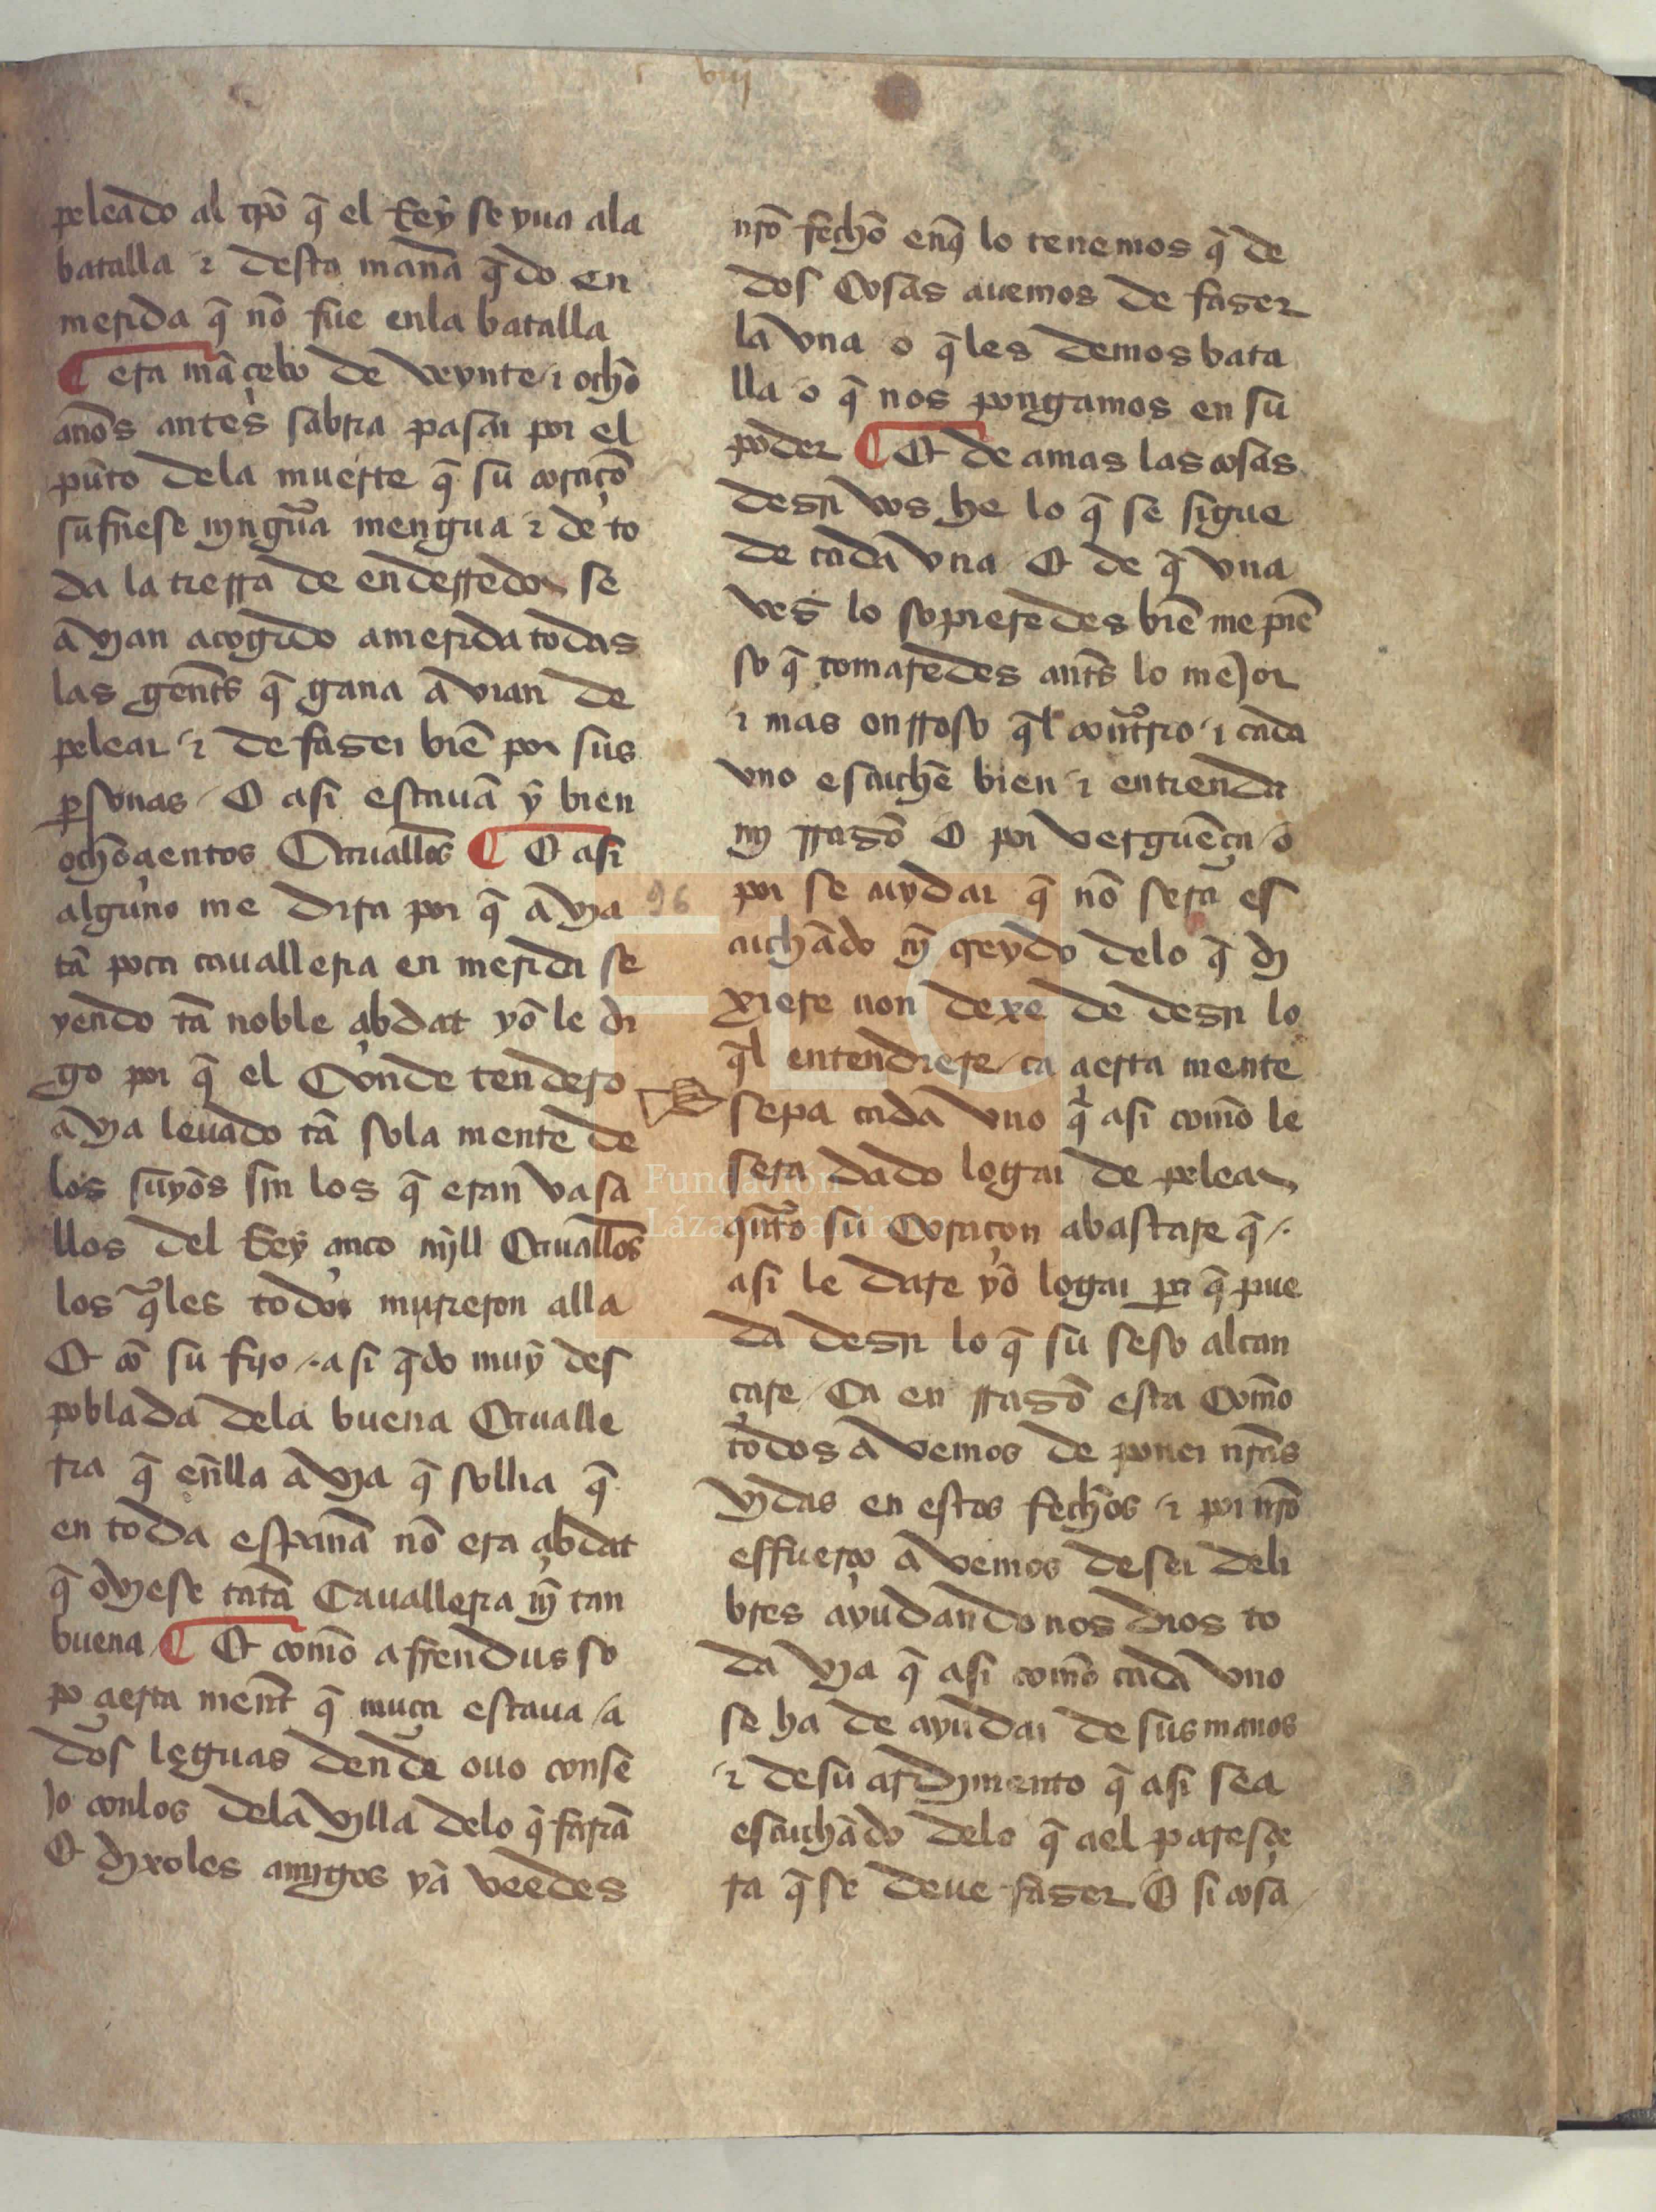 viij
peleado al tpõ q̃ el Rey se yua ala
batalla ⁊ desta mana q̃do en
merida q̃ nõ fue enla batalla
¶ era mãçebo de veynte ⁊ ocho
anõs antes sabria pasar por el
punto dela muerte q̃ su coraçõ
sufriese njngũa mengua ⁊ de to
da la tierra de enderredor se
avian acogido amerida todas
las gent̃s q̃ gana avian de
pelear ⁊ de faser biẽ por sus
ꝑsonas E asi estauã ỹ bien
ochoçientos Cauallos ¶ E asi
alguno me dira por q̃ avia
tã poca cauallería en merida se
yendo tã noble çibdat yo le di
go por q̃ el Conde tendero
avia leuado tã sola mente de
los suyos sin los q̃ eran vasa
llos del Rey çinco mjll Cauallos
los q̃les todos murieron alla
Et cõ su fijo asi q̃do muy des
poblada dela buena Caualle
ria q̃ enlla avia q̃ sollia q̃
en toda espana nõ era çibdat
q̃ oviese tãta Cavalleria nj̃ tan
buena ¶ Et como afrendus so
po çierta ment̃ q̃ muça estaua a
dos leguas dende ouo conse
jo conlos dela villa delo q̃ fariã
E dixoles amjgos ya veedes
nr̃o fechõ enq̃ lo tenemos q̃ de
dos Cosas auemos de faser
la vna o q̃ les demos bata
lla o q̃ nos pongamos en su
poder ¶ Et de amas las cosas
desir vos he lo q̃ se sigue
de cada vna Et de q̃ vna
ves lo sopieredes biẽ me piẽ
so q̃ tomaredes ant̃s lo mejor
⁊ mas onrroso q̃l contr̃io ⁊ cada
vno escuche bien ⁊ entienda
mj rrasõ E por verguẽça o
por se cuydar q̃ nõ sera es
cuchãdo nj̃ creydo delo q̃ di
xiere non dexe de desir lo
q̃l entendiere ca çierta mente
sepa cada vno q̃ asi como le
sera dado logar de pelear
quãto su Coraçon abastare q̃
asi le dare yo logar ꝑa q̃ pue
da desir lo q̃ su seso alcan
çare Ca en rrasõ esta Como
todos avemos de poner nr̃as
vidas en estos fechos ⁊ por nr̃o
effuerço avemos de ser deli
bres ayudando nos dios to
da via q̃ asi como cada vno
se ha de ayudar de sus manos
⁊ desu ardimento q̃ asi sea
escuchãdo delo q̃ ael paresçe
ra q̃ se deue faser E si cosa
96
FLG
Fundación
Lázaro Galdiano